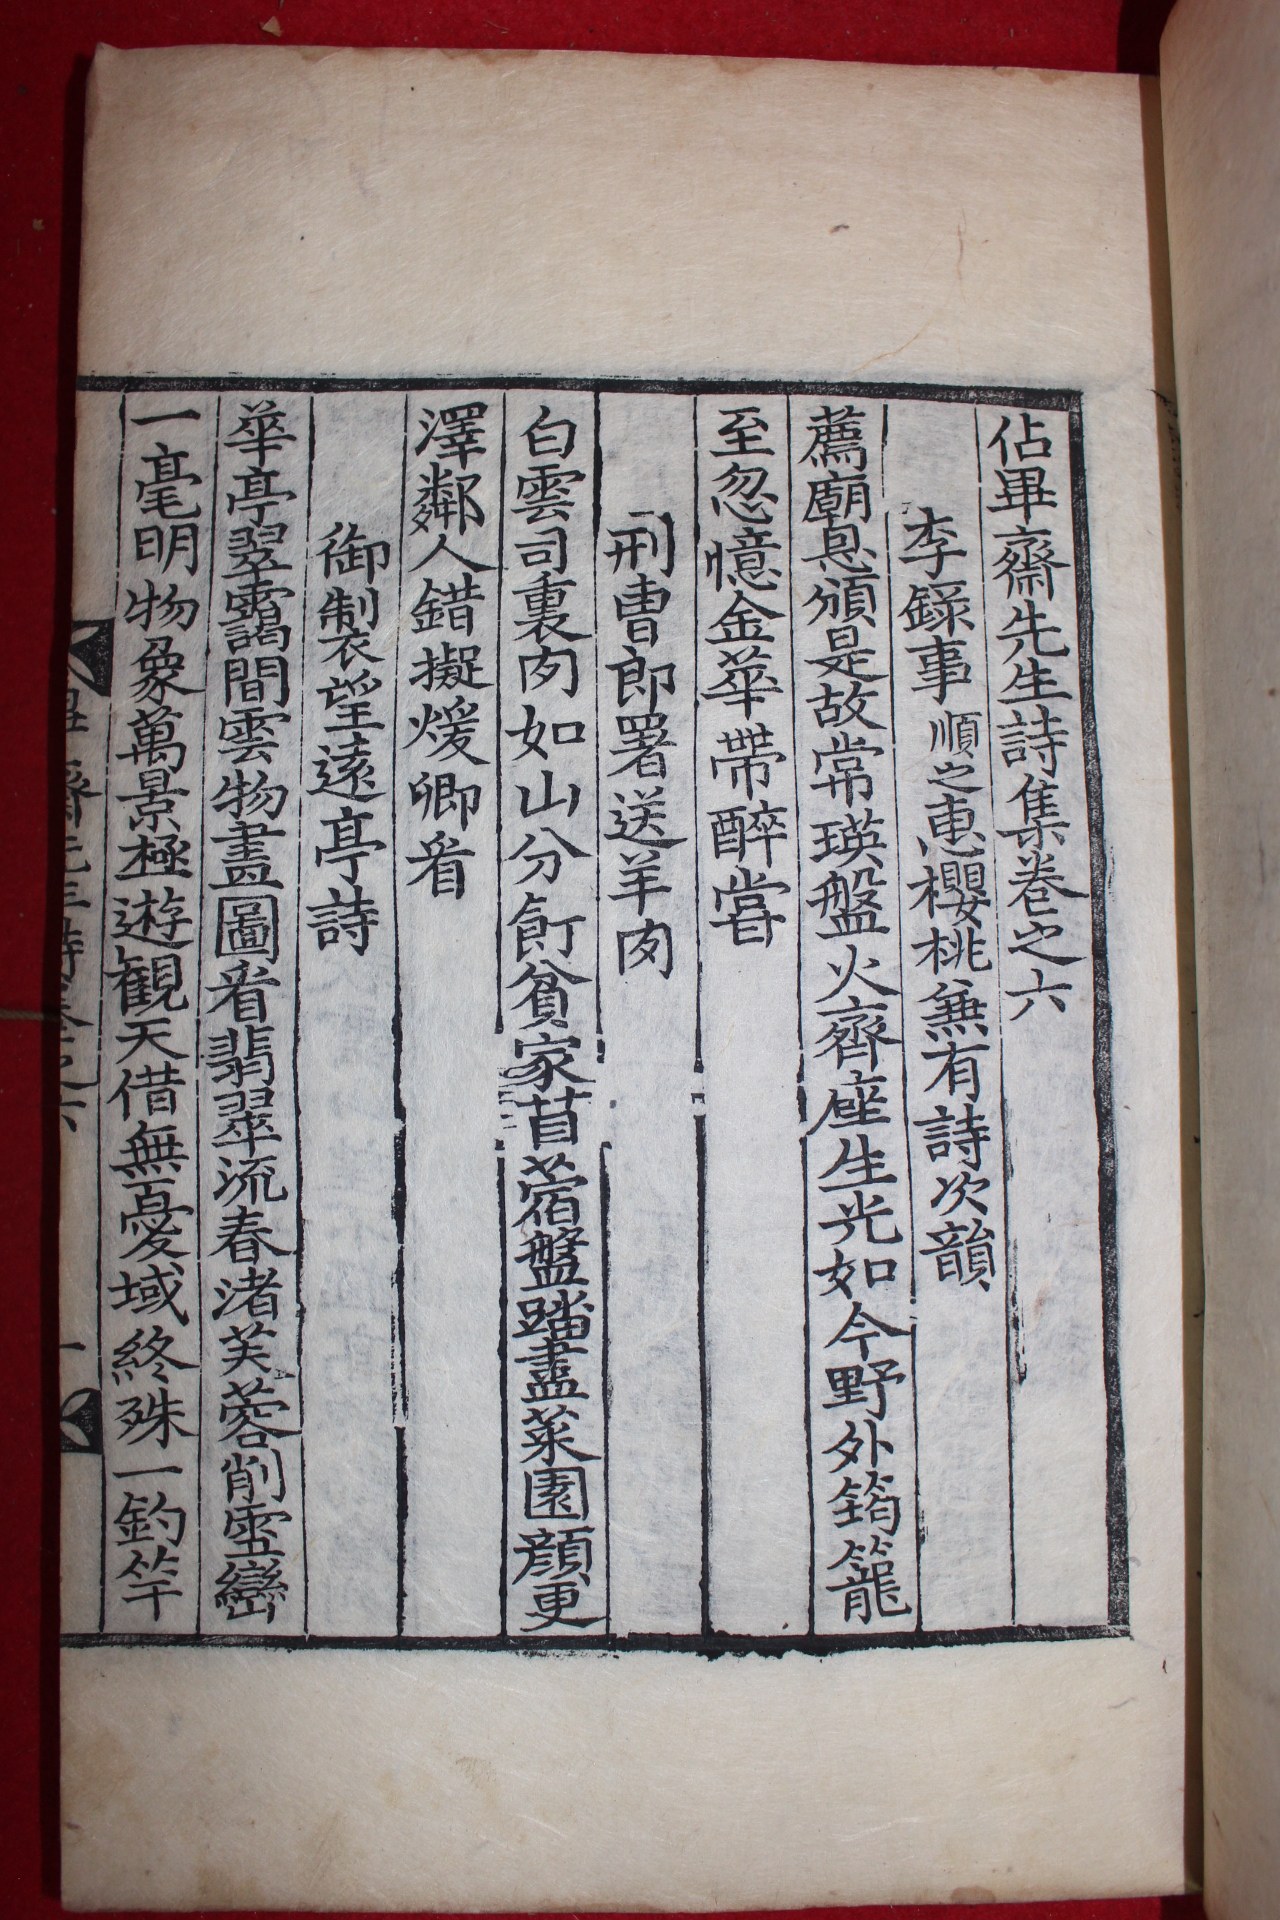 佔畢齋先生詩集卷之六
李錄事順之惠櫻桃無有詩次韻
薦廟恩頒是故常瑛盤火齊座生光如今野外筠籠
至忽憶金華帶醉嘗
刑曹郎署送羊肉
白雲司裏肉如山分飣貧家苜蓿盤蹯盡菜園顔更
澤鄰人錯擬煖卿看
御製望遠亭詩
華亭翌靄間雲物畫圖看翡翠流春渚芙蓉削雲巒
一毫明物象萬景極遊觀天借無憂域終殊一釣竿